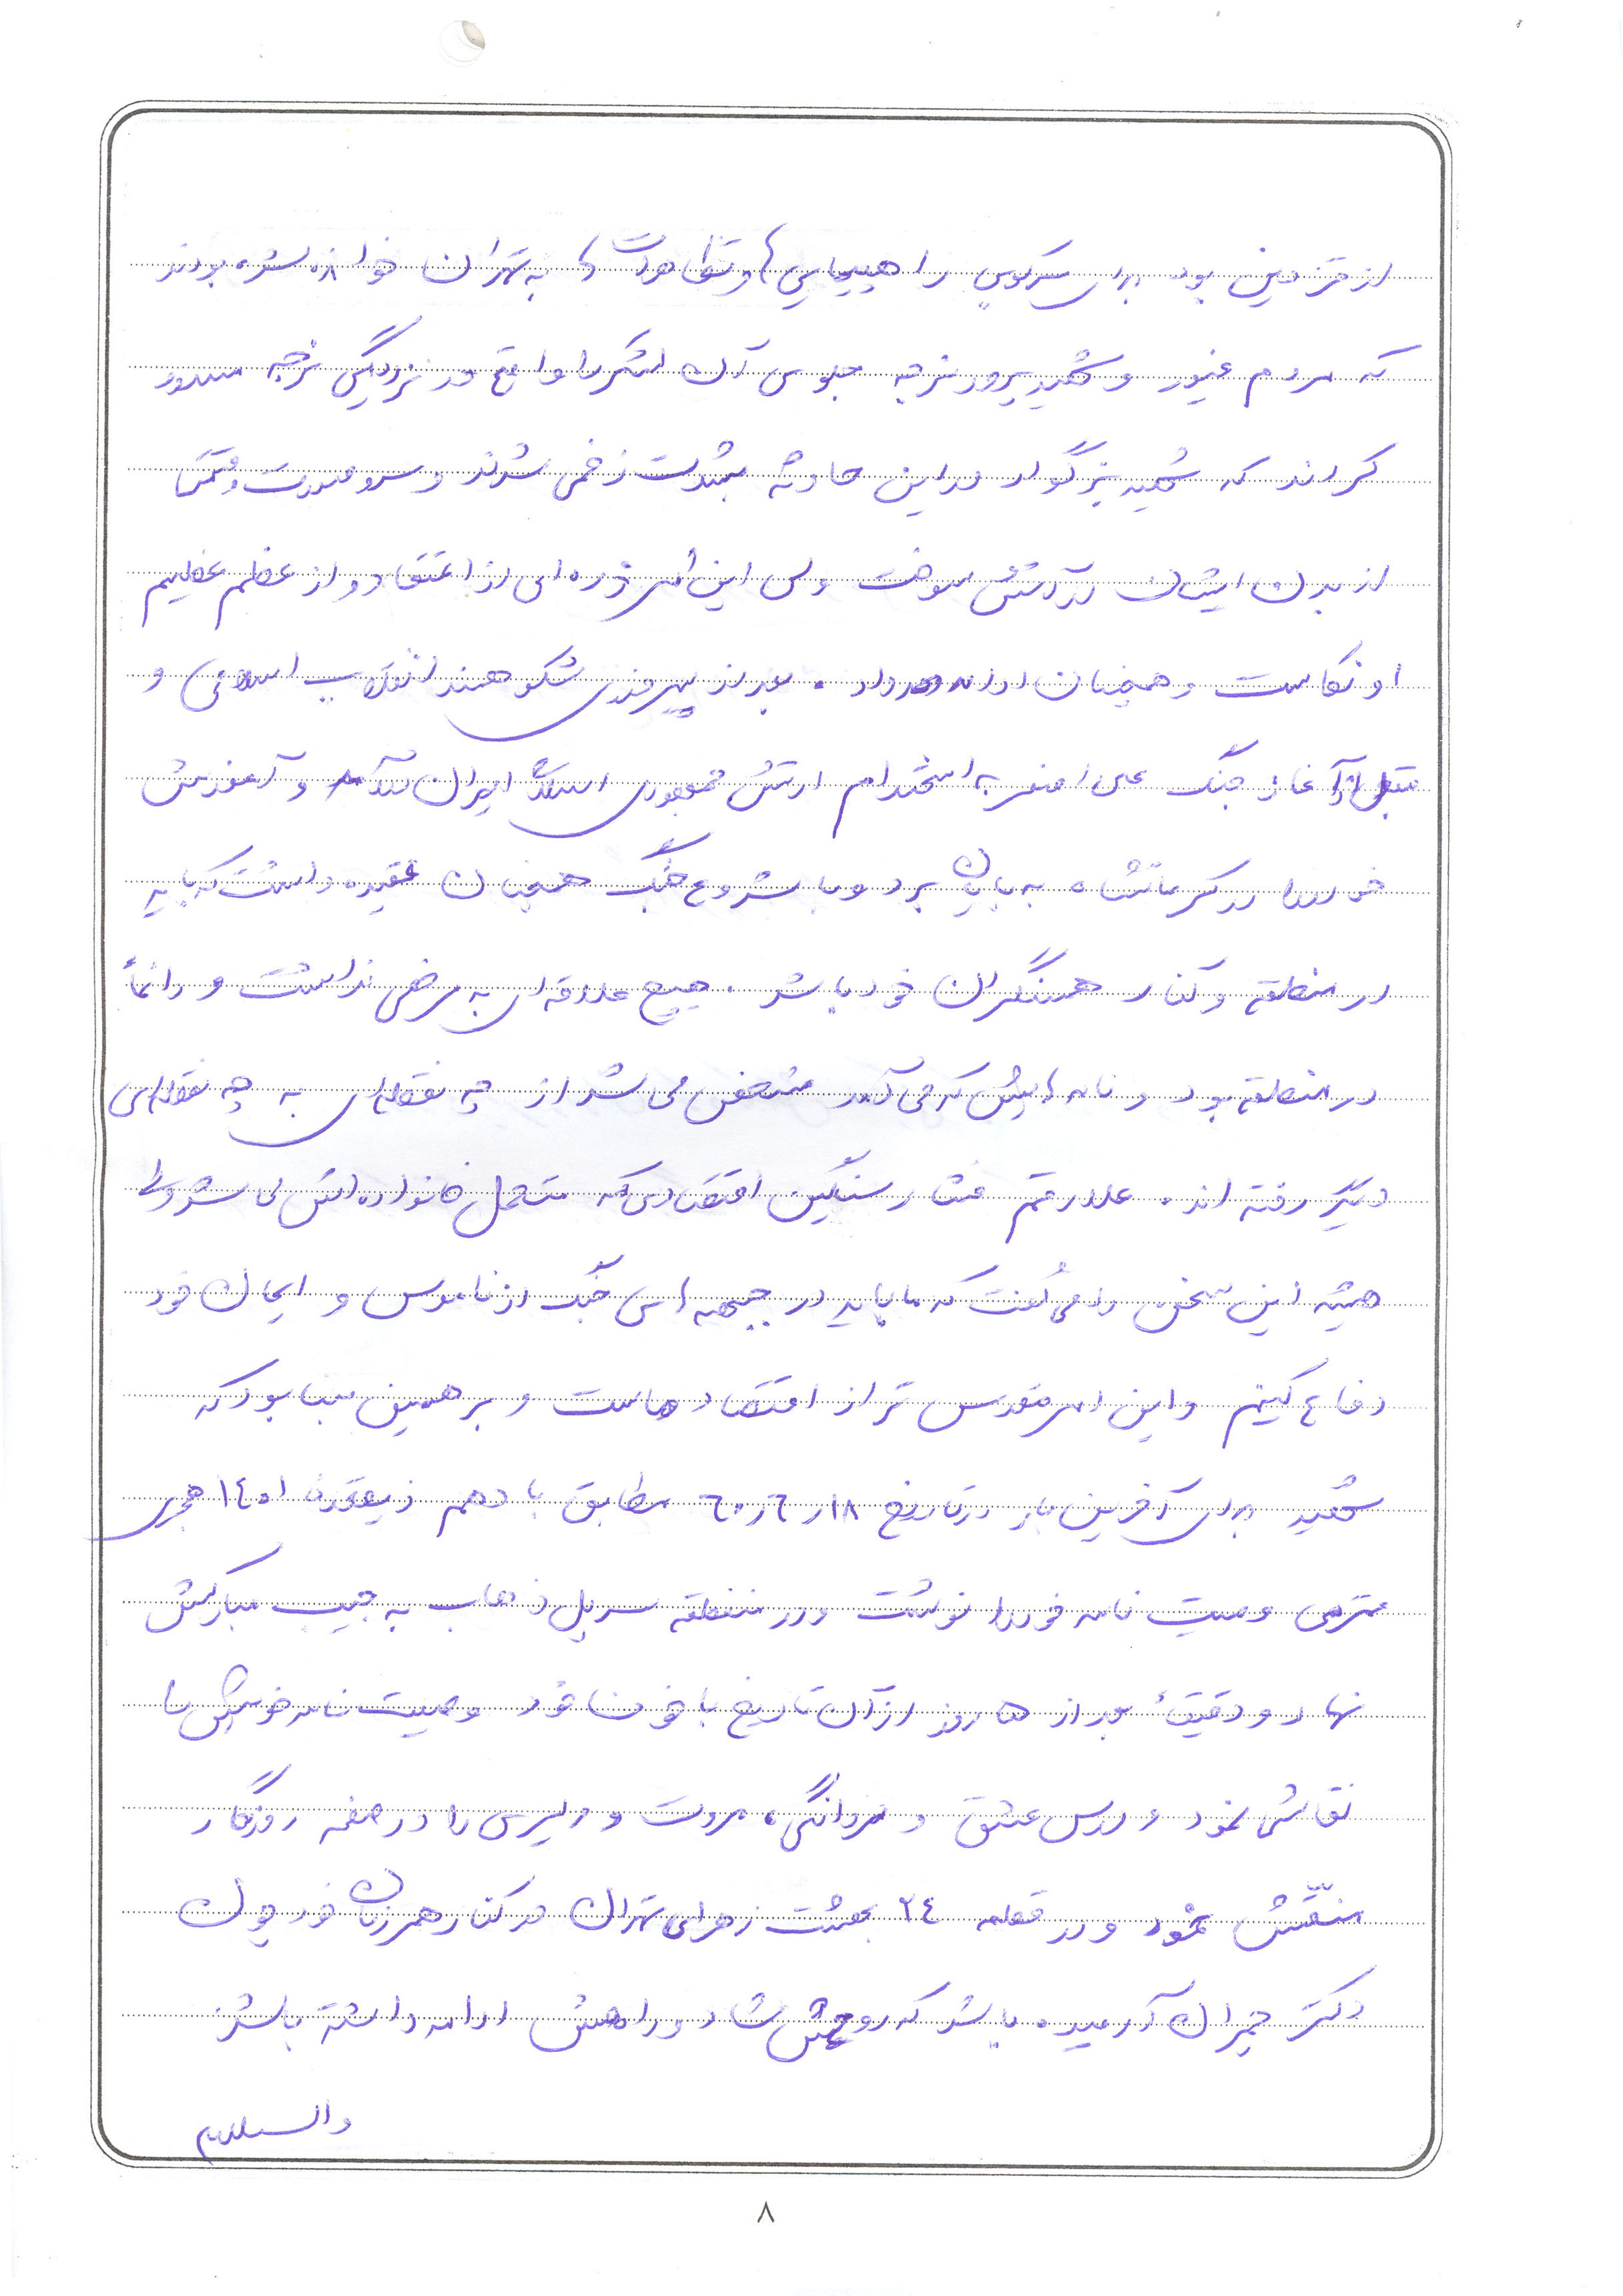 از قزوین بود برای سرکوبی راهپیمایی ها و تظاهرات ها به تهران خوانده شده بودند
که مردم غیور و شهیدپرور نرجه جلوس آن لشکر را واقع در نزدیکی نرجه مسدود
کردند که شهید بزرگوار در این حادثه بشدت زخمی شدند و سر و صورت و قسمتی
از بدن ایشان در آتش سوخت ولی این امر ذره ای از اعتقاد و از عظم عظیم
او نکاست و همچنان ادامه داد . بعد از پیروزی شکوهمند انقلاب اسلامی و
قبل از آغاز جنگ علی اصغر به استخدام ارتش جمهوری اسلامی ایران درآمد و آموزش
خود را در کرمانشاه به پایان برد و با شروع جنگ همچنان عقیده داشت که باید
در منطقه و کنار همسنگران خود باشد . هیچ علاقه ای به مرخصی نداشت و دائماً
در منطقه بود و نامه هایش که می آمد مشخص می شد از چه نقطه ای به چه نقطه ای
دیگر رفته اند . علارقم فشار سنگین اقتصادی که متحمل خانواده اش می شد ولی
همیشه این سخن را می گفت که ما باید در جبهه های جنگ از ناموس و ایمان خود
دفاع کنیم و این امر مقدس تر از اقتصاد ماست و بر همین مبنا بود که
شهید برای آخرین بار در تاریخ ١٨ر٦ر٦٠ مطابق با دهم ذیقعده ١٤٠١ هجری
قمری وصیت نامه خود را نوشت و در منطقه سرپل ذهاب به جیب مبارکش
نهاد و دقیقاً بعد از ۵ روز از آن تاریخ با خون خود وصیت نامه خویش را
نقاشی نمود و درس عشق و مردانگی، مروت و دلیری را در صفحه روزگار
منقّش نمود و در قطعه ٢٤ بهشت زهرای تهران در کنار همرزمان خود چون
دکتر چمران آرمیده باشد که روحش شاد و راهش ادامه داشته باشد
والسلام
٨